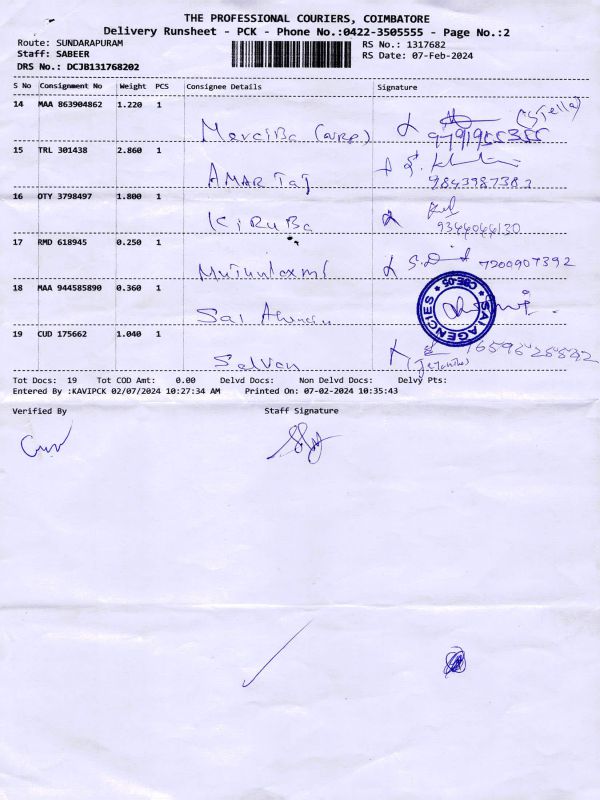 THE PROFESSIONAL COURIERS, COIMBATORE
Delivery Runsheet - PCK - Phone No.:0422-3505555 - Page No.:2
Route: SUNDARAPURAM
RS No.: 1317682
Staff: SABEER
RS Date: 07-Feb-2024
DRS No.: DCJB131768202
S No Consignment No Weight PCS Consignee Details Signature
14 MAA 863904862 1.220 1
(Stella)
15 TRL 301438 2.860 1
AMAR Taj 9843987383
16 OTY 3798497 1.800 1
KiRuBa 9344044130
17 RMD 618945 0.250 1
7200907392
18 MAA 944585890 0.360 1
Sai
SAI AGENCIES * CBE-05 *
19 CUD 175662 1.040 1
Selvan
Tot Docs: 19 Tot COD Amt: 0.00 Delvd Docs: Non Delvd Docs: Delvy Pts:
Entered By :KAVIPCK 02/07/2024 10:27:34 AM Printed On: 07-02-2024 10:35:43
Verified By Staff Signature